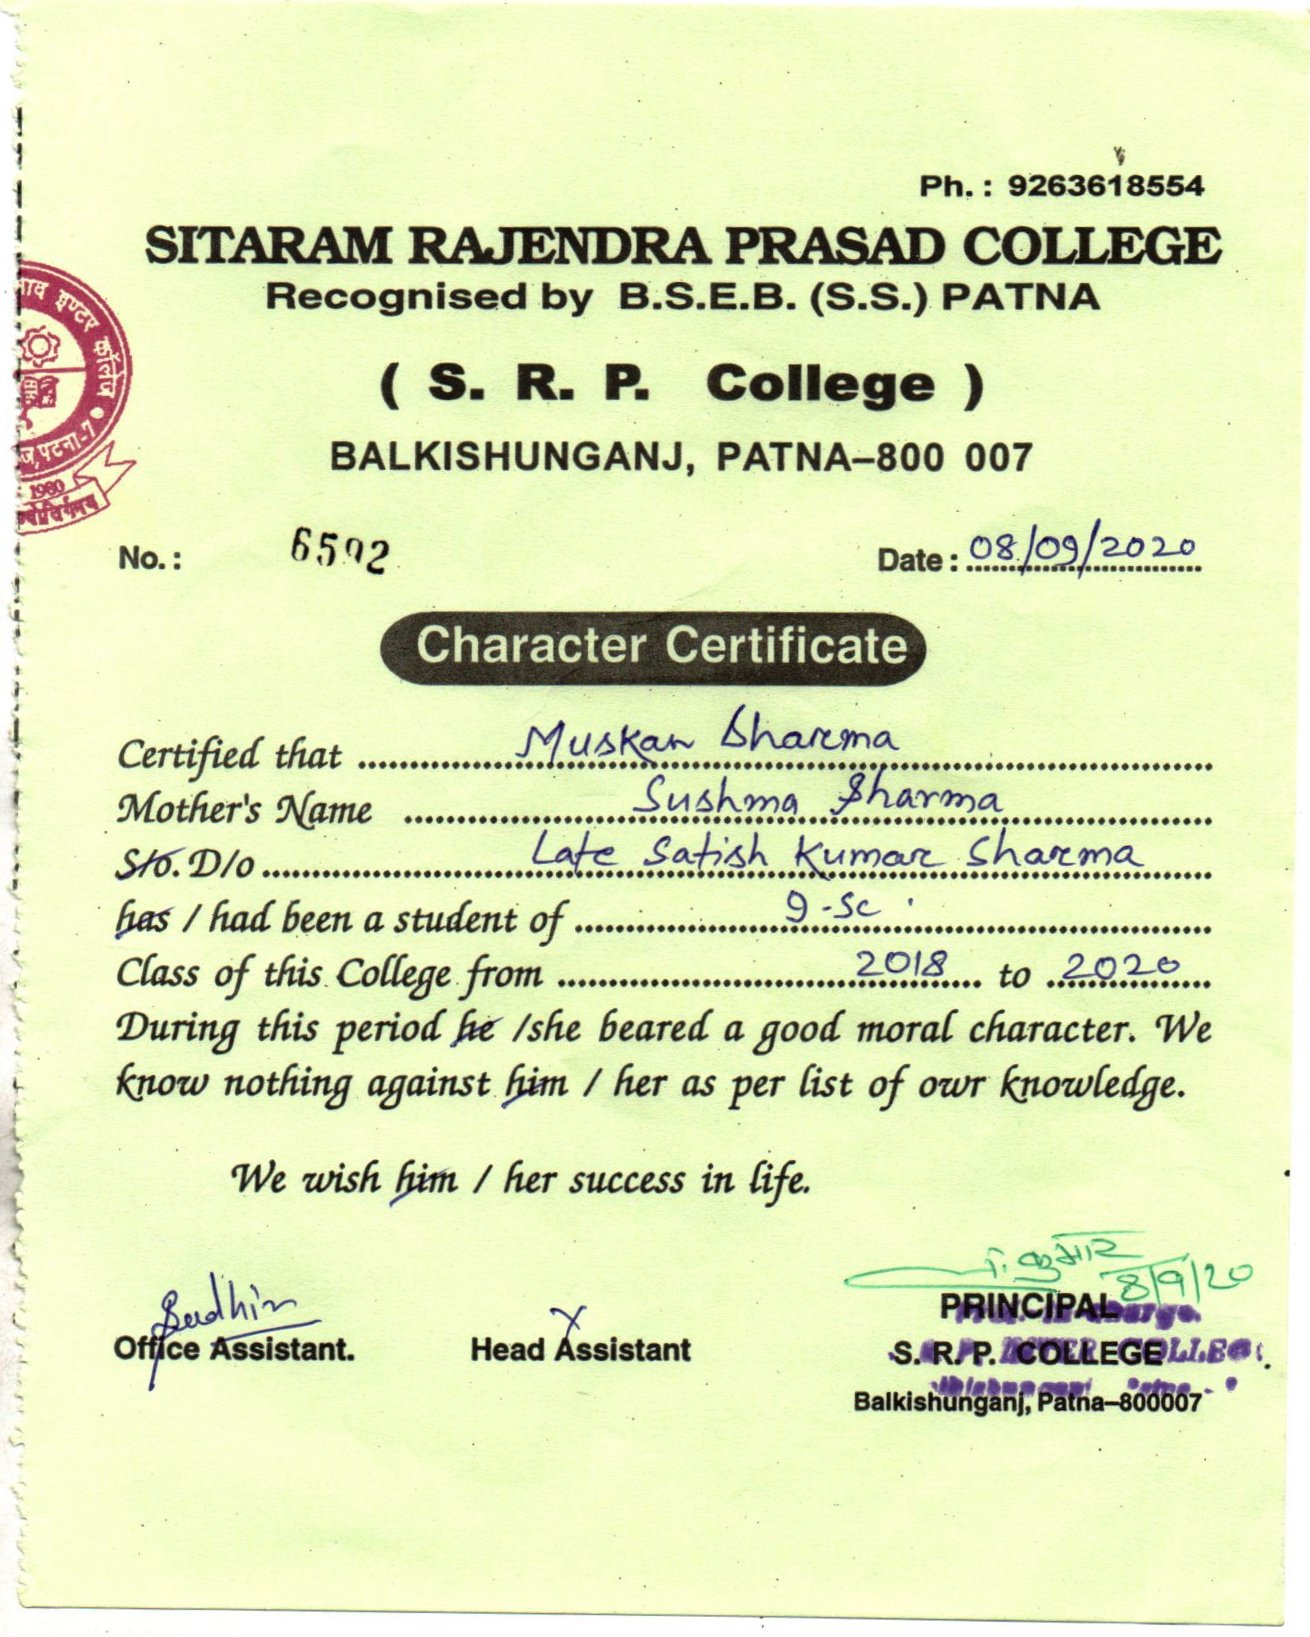 Ph. : 9263618554
SITARAM RAJENDRA PRASAD COLLEGE
Recognised by B.S.E.B. (S.S.) PATNA
( S. R. P. College )
BALKISHUNGANJ, PATNA–800 007
इण्टर कॉलेज
पटना-7
1980
No. : 6592 Date : 08/09/2020
Character Certificate
Certified that Muskan Sharma
Mother's Name Sushma Sharma
S/o. D/o Late Satish Kumar Sharma
has / had been a student of I-Sc
Class of this College from 2018 to 2020
During this period he /she beared a good moral character. We
know nothing against him / her as per list of owr knowledge.
We wish him / her success in life.
8/9/20
Office Assistant. Head Assistant PRINCIPAL
S. R. P. COLLEGE
Balkishunganj, Patna–800007